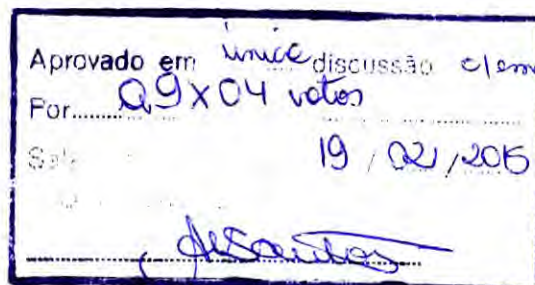 Aprovado em única discussão c/em
Por........ 09 x 04 votos
19 / 02 / 2015